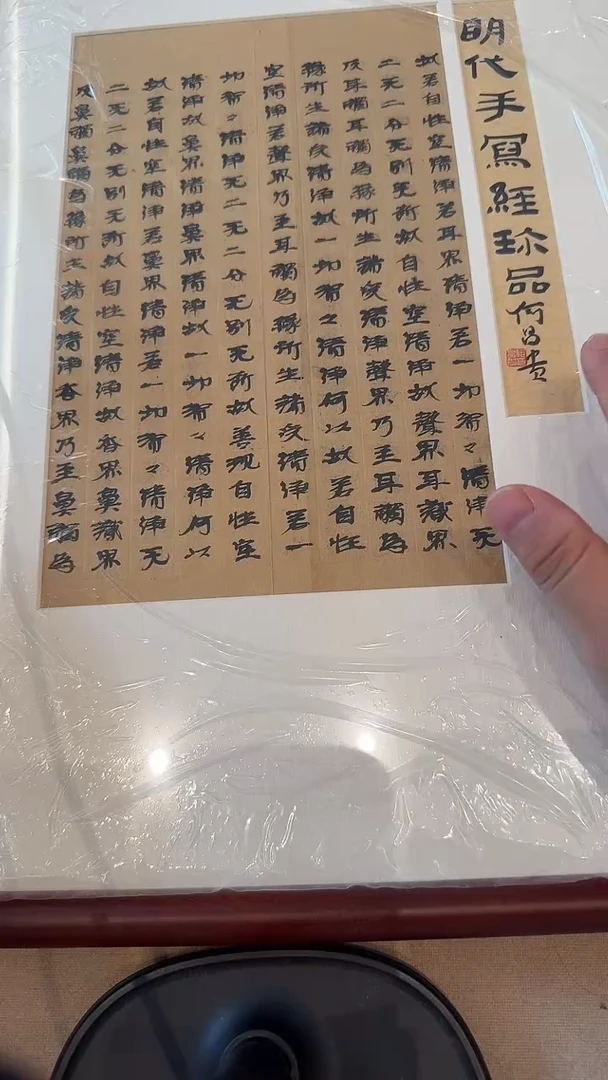 明代手寫經珍品 何昌贵
故若自性空清淨若耳界清淨若一切智々清淨无
二无二分无別无断故自性空清淨故聲界耳識界
及耳觸耳觸為緣所生諸受清淨聲界乃至耳觸為
緣所生諸受清淨故一切智々清淨何以故若自性
空清淨若聲界乃至耳觸為緣所生諸受清淨若一
切智々清淨无二无二分无別无断故善現自性空
清淨故鼻界清淨鼻界清淨故一切智々清淨何以
故若自性空清淨若鼻界清淨若一切智々清淨无
二无二分无別无断故自性空清淨故香界鼻識界
及鼻觸鼻觸為緣所生諸受清淨香界乃至鼻觸為